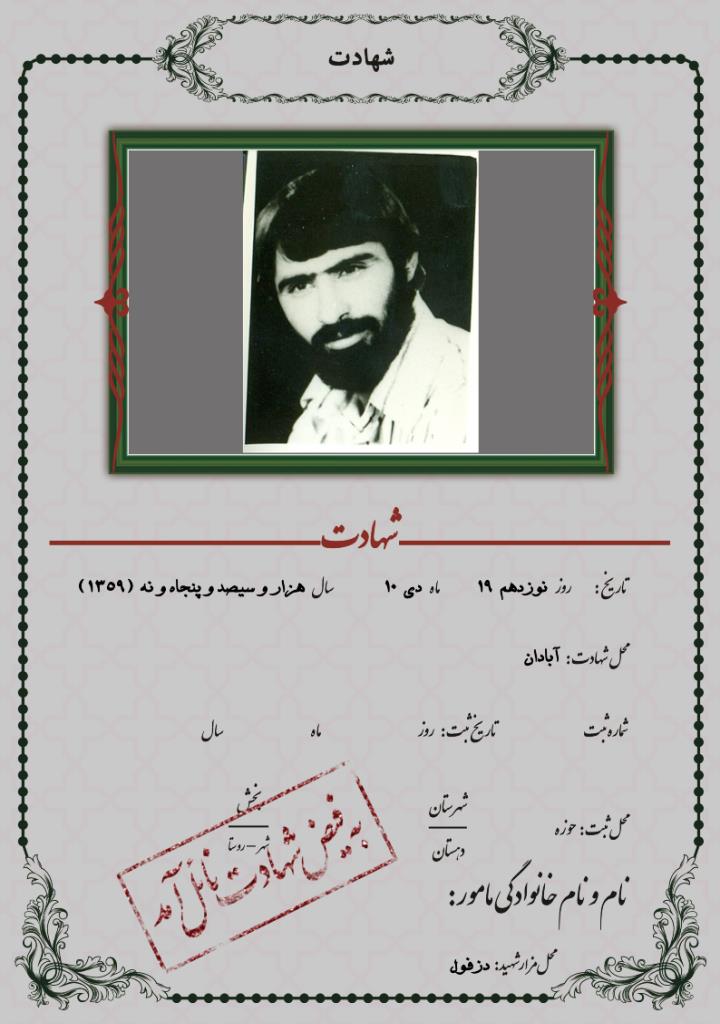 شهادت
شهادت
تاریخ: روز نوزدهم ۱۹ ماه دی ۱۰ سال هزار و سیصد و پنجاه و نه (۱۳۵۹)
محل شهادت: آبادان
شماره ثبت تاریخ ثبت: روز ماه سال
محل ثبت: حوزه شهرستان بخش
دهستان شهر - روستا
به فیض شهادت نائل آمد
نام و نام خانوادگی مامور:
محل مزار شهید: دزفول